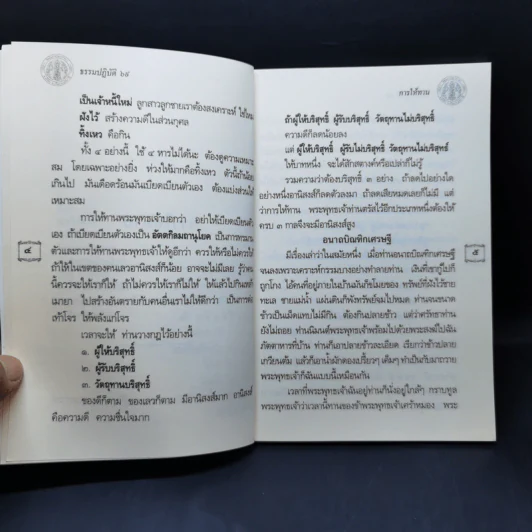 ธรรมปฏิบัติ ๖๙
เป็นเจ้าหนี้ใหม่ ลูกสาวลูกชายเราต้องสงเคราะห์ ใช้ใหม่
ฝังไว้ สร้างความดีในส่วนกุศล
ทิ้งเหว คือกิน
ทั้ง ๔ อย่างนี้ ใช้ ๔ หารไม่ได้นะ ต้องดูความเหมาะ
สม โดยเฉพาะอย่างยิ่ง ห่วงให้มากคือทิ้งเหว ตัวนี้ถ้าน้อย
เกินไป มันเดือดร้อนมันเบียดเบียนตัวเอง ต้องแบ่งส่วนให้
เหมาะสม
การให้ทานพระพุทธเจ้าบอกว่า อย่าให้เบียดเบียนตัว
เอง ถ้าเบียดเบียนตัวเองเป็น อัตตกิลมถานุโยค เป็นการทรมาน
ตัวและการให้ทานพระพุทธเจ้าให้ดูอีกว่า ควรให้หรือไม่ควรให้
ถ้าให้ในเขตของคนเลวอานิสงส์ก็น้อย อาจจะไม่มีเลย รู้ว่าคน
นี้ควรจะให้เราก็ให้ ถ้าไม่ควรให้เราก็ไม่ให้ ให้แล้วไปกินเหล้า
เมายา ไปสร้างอันตรายกับคนอื่นเราไม่ให้ดีกว่า เป็นการ
เท้าโจร ให้พลังแก่โจร
เวลาจะให้ ท่านวางกฎไว้อย่างนี้
๑. ผู้ให้บริสุทธิ์
๒. ผู้รับบริสุทธิ์
๓. วัตถุทานบริสุทธิ์
ของดีก็ตาม ของเลวก็ตาม มีอานิสงส์มาก อานิสงส์
คือความดี ความชื่นใจมาก
๔
การให้ทาน
ถ้าผู้ให้บริสุทธิ์ ผู้รับบริสุทธิ์ วัตถุทานไม่บริสุทธิ์
ความดีก็ลดน้อยลง
แต่ ผู้ให้บริสุทธิ์ ผู้รับไม่บริสุทธิ์ วัตถุทานไม่บริสุทธิ์
ให้บาทหนึ่ง จะได้สักสตางค์หรือเปล่าก็ไม่รู้
รวมความว่าต้องบริสุทธิ์ ๓ อย่าง ถ้าลดไปอย่างใด
อย่างหนึ่งอานิสงส์ก็ลดตัวลงมา ถ้าลดเสียหมดเลยก็ไม่มี แต่
ว่าการให้ทาน พระพุทธเจ้าท่านตรัสไว้อีกประเภทหนึ่งต้องให้
ครบ ๓ กาลจึงจะมีอานิสงส์สูง
อนาถบิณฑิกเศรษฐี
มีเรื่องเล่าว่าในสมัยหนึ่ง เมื่อท่านอนาถบิณฑิกเศรษฐี
จนลงเพราะเคราะห์กรรมบางอย่างทำลายท่าน เงินที่เขากู้ไปก็
ถูกโกง ไอ้คนที่อยู่ภายในบ้านมันก็ขโมยของ ทรัพย์ที่ฝังไว้ชาย
ทะเล ชายแม่น้ำ แผ่นดินก็พังทรัพย์จมไปหมด ท่านจนขนาด
ข้าวเป็นเม็ดแทบไม่มีกิน ต้องกินปลายข้าว แต่ว่าศรัทธาท่าน
ยังไม่ถอย ท่านนิมนต์พระพุทธเจ้าพร้อมไปด้วยพระสงฆ์ไปฉัน
ภัตตาหารที่บ้าน ท่านก็เอาปลายข้าวละเอียด เรียกว่าข้าวปลาย
เกวียนต้ม แล้วก็เอาน้ำผักดองเปรี้ยวๆ เค็มๆ ทำเป็นกับมาถวาย
พระพุทธเจ้าก็ฉันแบบนี้เหมือนกัน
เวลาที่พระพุทธเจ้าฉันอยู่ท่านก็นั่งอยู่ใกล้ๆ กราบทูล
พระพุทธเจ้าว่าเวลานี้ทานของข้าพระพุทธเจ้าเศร้าหมอง พระ
๕